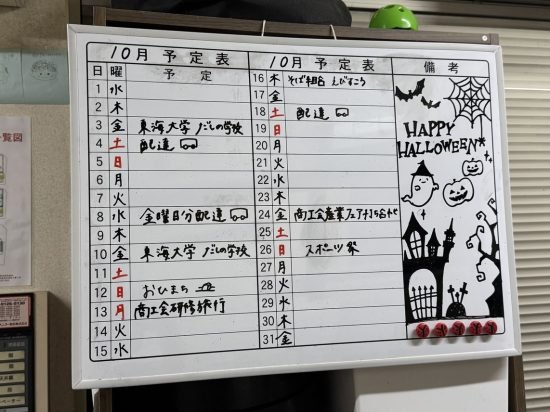 10月 予定表
日 曜 予定
1 水
2 木
3 金 東海大学 だしの学校
4 土 配達
5 日
6 月
7 火
8 水 金曜日分配達
9 木
10 金 東海大学 だしの学校
11 土
12 日 おひまち
13 月 商工会研修旅行
14 火
15 水
10月 予定表
16 木 そば組合 えびすこう
17 金
18 土 配達
19 日
20 月
21 火
22 水
23 木
24 金 商工会産業フェア打ち合わせ
25 土
26 日 スポーツ祭
27 月
28 火
29 水
30 木
31 金
備考
HAPPY
HALLOWEEN*
覧図